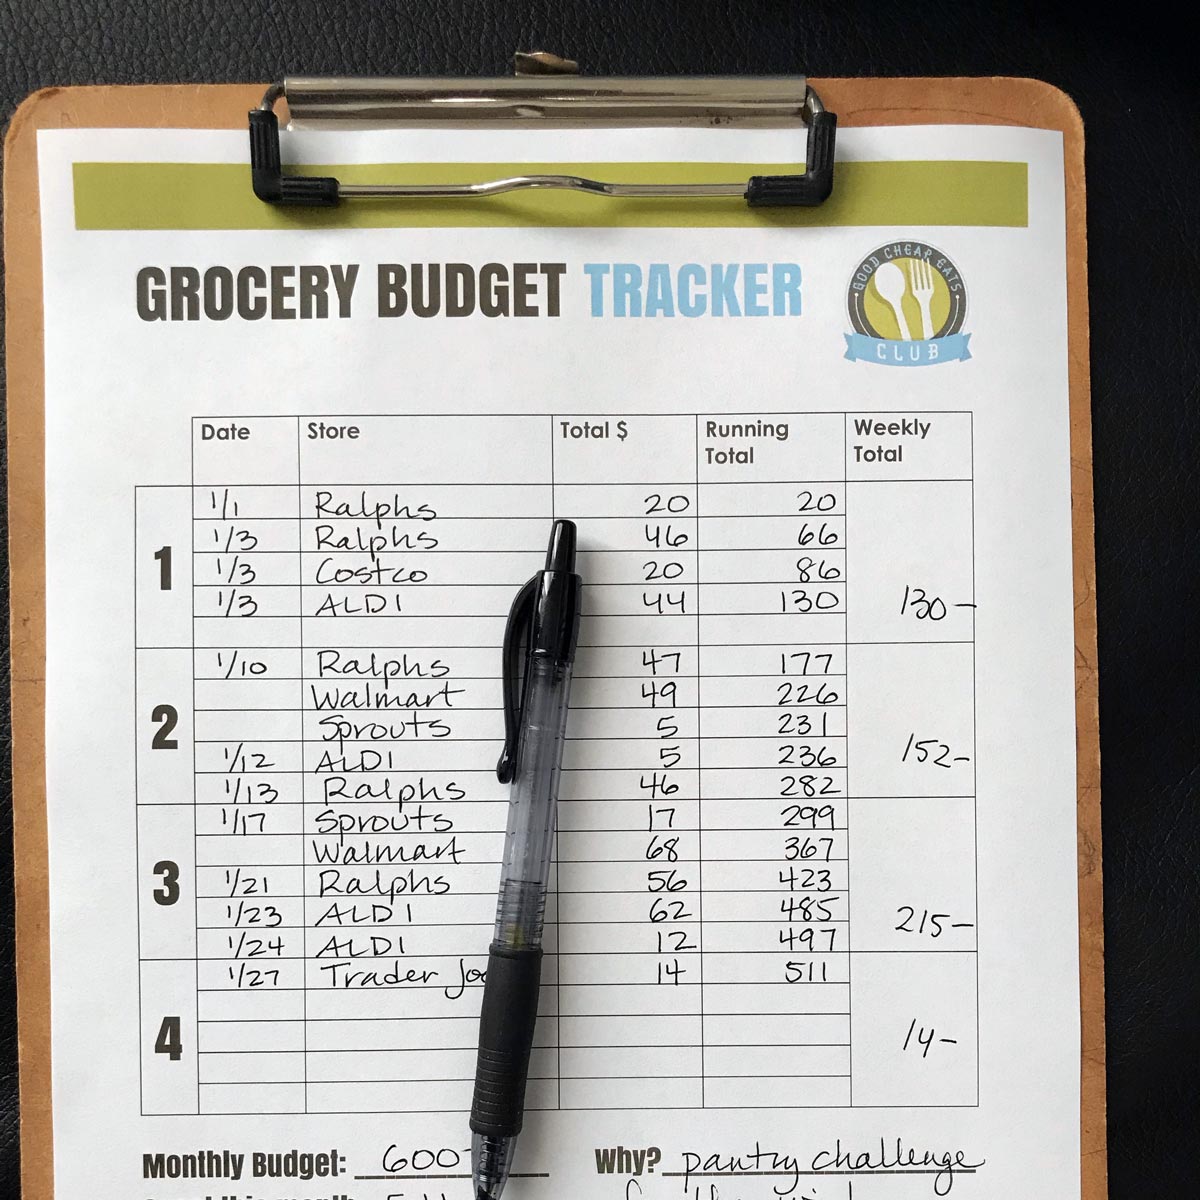 GROCERY BUDGET TRACKER
GOOD CHEAP EATS
CLUB
Date Store Total $ Running Total Weekly Total
1
1/1 Ralphs 20 20
1/3 Ralphs 46 66
1/3 Costco 20 86
1/3 ALDI 44 130 130-
2
1/10 Ralphs 47 177
Walmart 49 226
Sprouts 5 231
1/12 ALDI 5 236 152-
1/13 Ralphs 46 282
3
1/17 Sprouts 17 299
Walmart 68 367
1/21 Ralphs 56 423
1/23 ALDI 62 485 215-
1/24 ALDI 12 497
4
1/27 Trader 14 511
14-
Monthly Budget: 600 Why? pantry challenge